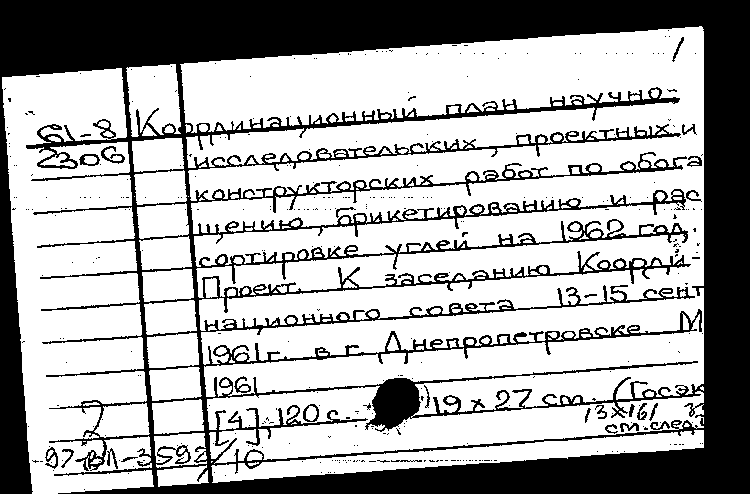 1
61-8 Координационный план научно-
2306 исследовательских, проектных и
конструкторских работ по обога
щению, брикетированию и рас
сортировке углей на 1962 год.
Проект. К заседанию Коорди-
национного совета 13-15 сент
1961 г. в г. Днепропетровске. М
1961.
[4], 120 с. 19 х 27 см. (Госэк
13X161
см. след.
97-ВЛ-3592/10